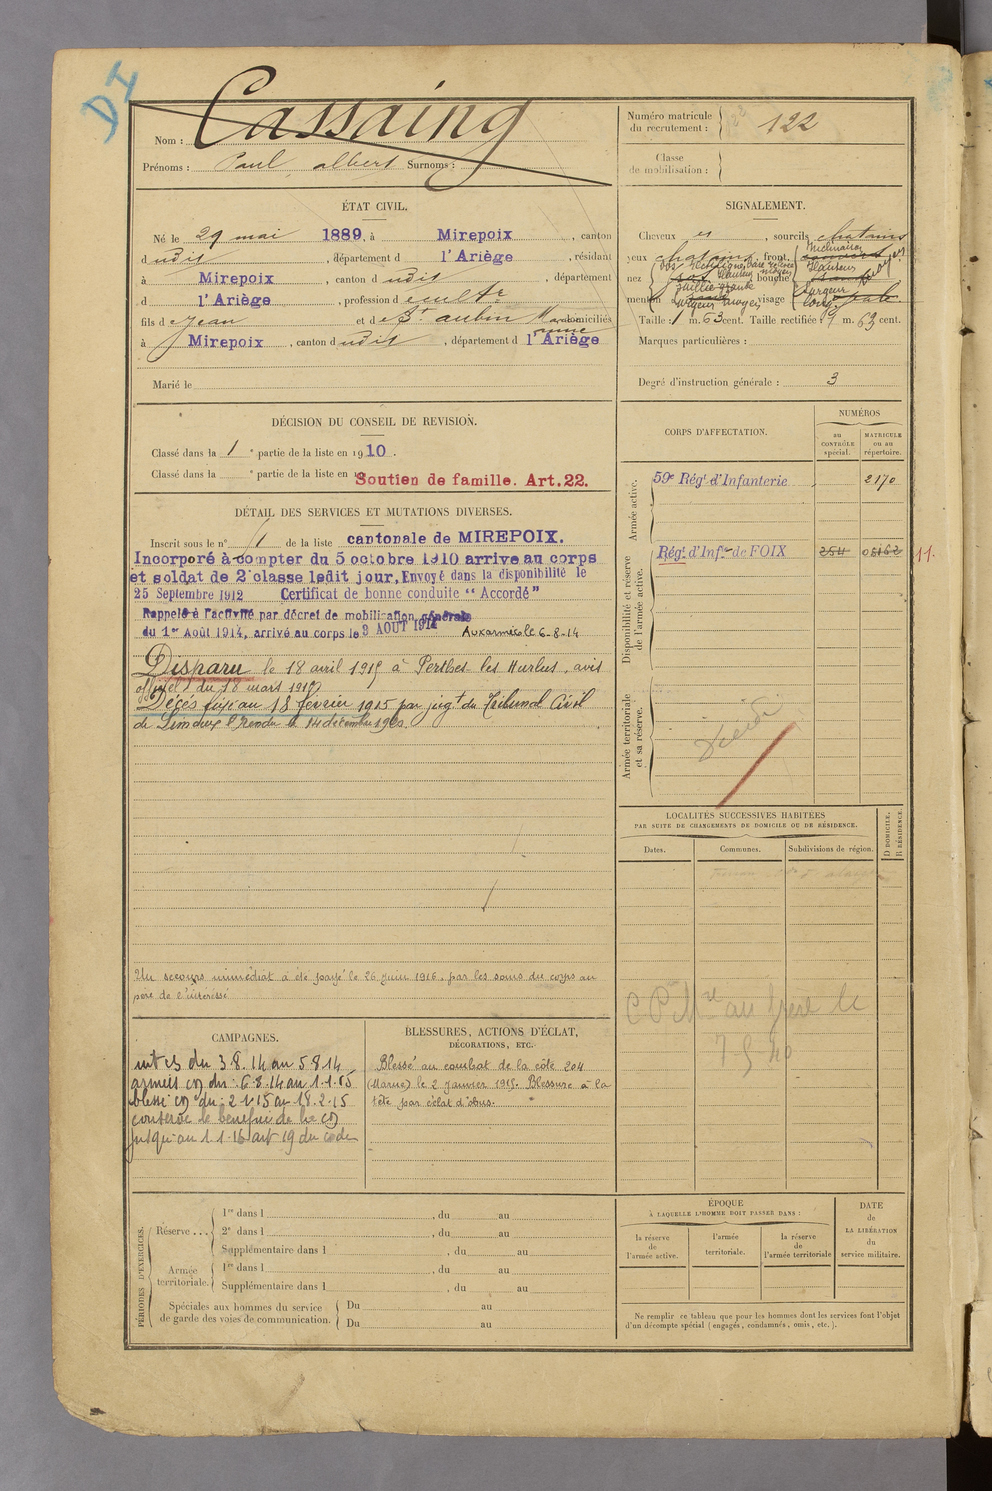 DI
Nom : Cassaing
Prénoms : Paul, albert Surnoms :
Numéro matricule
du recrutement : 122
Classe
de mobilisation :
ÉTAT CIVIL.
Né le 29 mai 1889, à Mirepoix, canton
d udit, département d l'Ariège, résidant
à Mirepoix, canton d udit, département
d l'Ariège, profession d cultr
fils d e Jean et d e St aubin domiciliés
à Mirepoix, canton d udit, département d l'Ariège
Marié le
SIGNALEMENT.
Cheveux sourcils chatains
yeux chatains, front Inclinaison
nez dos rectiligne base relevée Hauteur moyen bouche Hauteur moyen
Saillie grande
menton Largeur moyen visage Largeur
long pale
Taille : 1 m. 63 cent. Taille rectifiée : 1 m. 63 cent.
Marques particulières :
Degré d'instruction générale : 3
DÉCISION DU CONSEIL DE REVISION.
Classé dans la 1 e partie de la liste en 1910.
Classé dans la e partie de la liste en 19
Soutien de famille. Art. 22.
DÉTAIL DES SERVICES ET MUTATIONS DIVERSES.
Inscrit sous le n° 11 de la liste cantonale de MIREPOIX.
Incorporé à compter du 5 octobre 1910 arrive au corps
et soldat de 2e classe ledit jour, Envoyé dans la disponibilité le
25 Septembre 1912 Certificat de bonne conduite "Accordé"
Rappelé à l'activité par décret de mobilisation générale
du 1er Août 1914, arrivé au corps le 3 AOUT 1914 Aux armées le 6-8-14
Disparu le 18 avril 1915 à Perthes les Hurlus, avis
officiel du 18 mars 1919
Décés fixé au 18 février 1915 par jugt du Tribunal Civil
de Limoux Rendu le 14 décembre 1920.
Un secours immédiat a été payé le 26 Juin 1916, par les soins du corps au
père de l'intéressé
CORPS D'AFFECTATION.
NUMÉROS
au
CONTRÔLE
spécial.
MATRICULE
ou au
répertoire.
Armée active.
59e Régt d'Infanterie 2170
Disponibilité et réserve
de l'armée active.
Régt d'Infie de FOIX 254 05162 11.
Armée territoriale
et sa réserve.
Décédé
LOCALITÉS SUCCESSIVES HABITÉES
PAR SUITE DE CHANGEMENTS DE DOMICILE OU DE RÉSIDENCE.
Dates.
Communes.
Subdivisions de région.
D DOMICILE.
R RÉSIDENCE.
C P Mre au frère le
7-5-40
CAMPAGNES.
int cs du 3.8.14 au 5.8.14
armées cd du : 6.8.14 au 1.1.15
blessé cd du : 2 1 15 au 18.2.15
conserve le bénéfice de la cd
jusqu'au 1 1.16 art 19 du code
BLESSURES, ACTIONS D'ÉCLAT,
DÉCORATIONS, ETC.
Blessé au combat de la côte 204
(Marne) le 2 Janvier 1915. Blessure à la
tête par éclat d'obus.
PÉRIODES D'EXERCICES.
Réserve ...
1re dans l , du au
2e dans l , du au
Supplémentaire dans l , du au
Armée
territoriale.
1re dans l , du au
Supplémentaire dans l , du au
Spéciales aux hommes du service
de garde des voies de communication.
Du au
Du au
ÉPOQUE
À LAQUELLE L'HOMME DOIT PASSER DANS :
la réserve
de
l'armée active.
l'armée
territoriale.
la réserve
de
l'armée territoriale
DATE
de
LA LIBÉRATION
du
service militaire.
Ne remplir ce tableau que pour les hommes dont les services font l'objet
d'un décompte spécial (engagés, condamnés, omis, etc.).